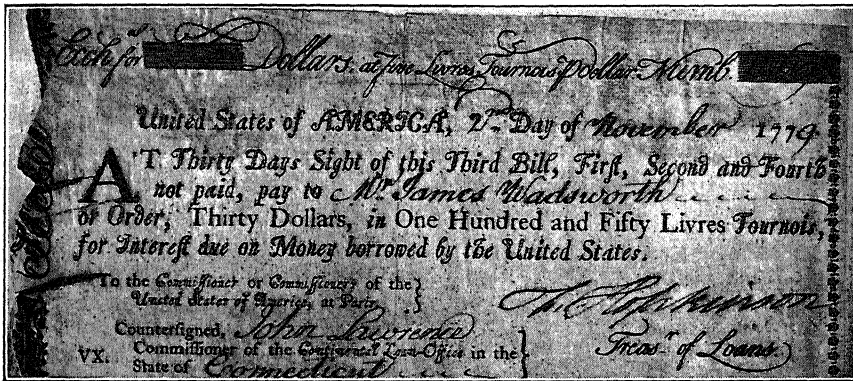 Exch.ᵃ for Dollars. at five Livres Tournois ⅌ Dollar. Numb.
United States of AMERICA, 2ⁿᵈ Day of November 1779
AT Thirty Days Sight of this Third Bill, First, Second and Fourth
not paid, pay to Mr. James Wadsworth
or Order, Thirty Dollars, in One Hundred and Fifty Livres Tournois,
for Interest due on Money borrowed by the United States.
To the Commissioner or Commissioners of the
United States of America, at Paris.
Hopkinson
Treas.ʳ of Loans.
Countersigned, John Lawrence
VX. Commissioner of the Continental Loan-Office in the
State of Connecticut